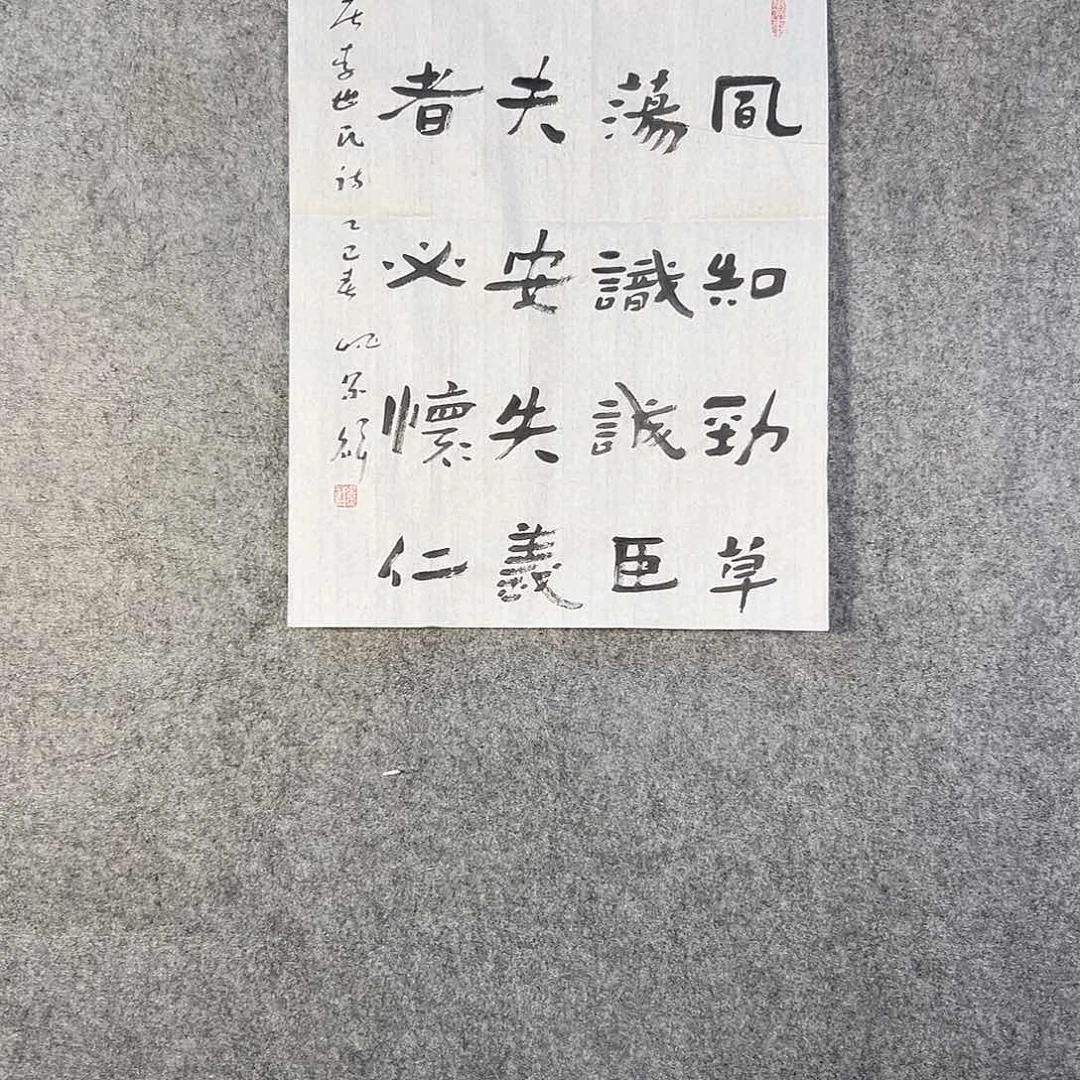 風知勁草
蕩識誠臣
夫安失義
者必懷仁
唐李世民詩 乙巳春